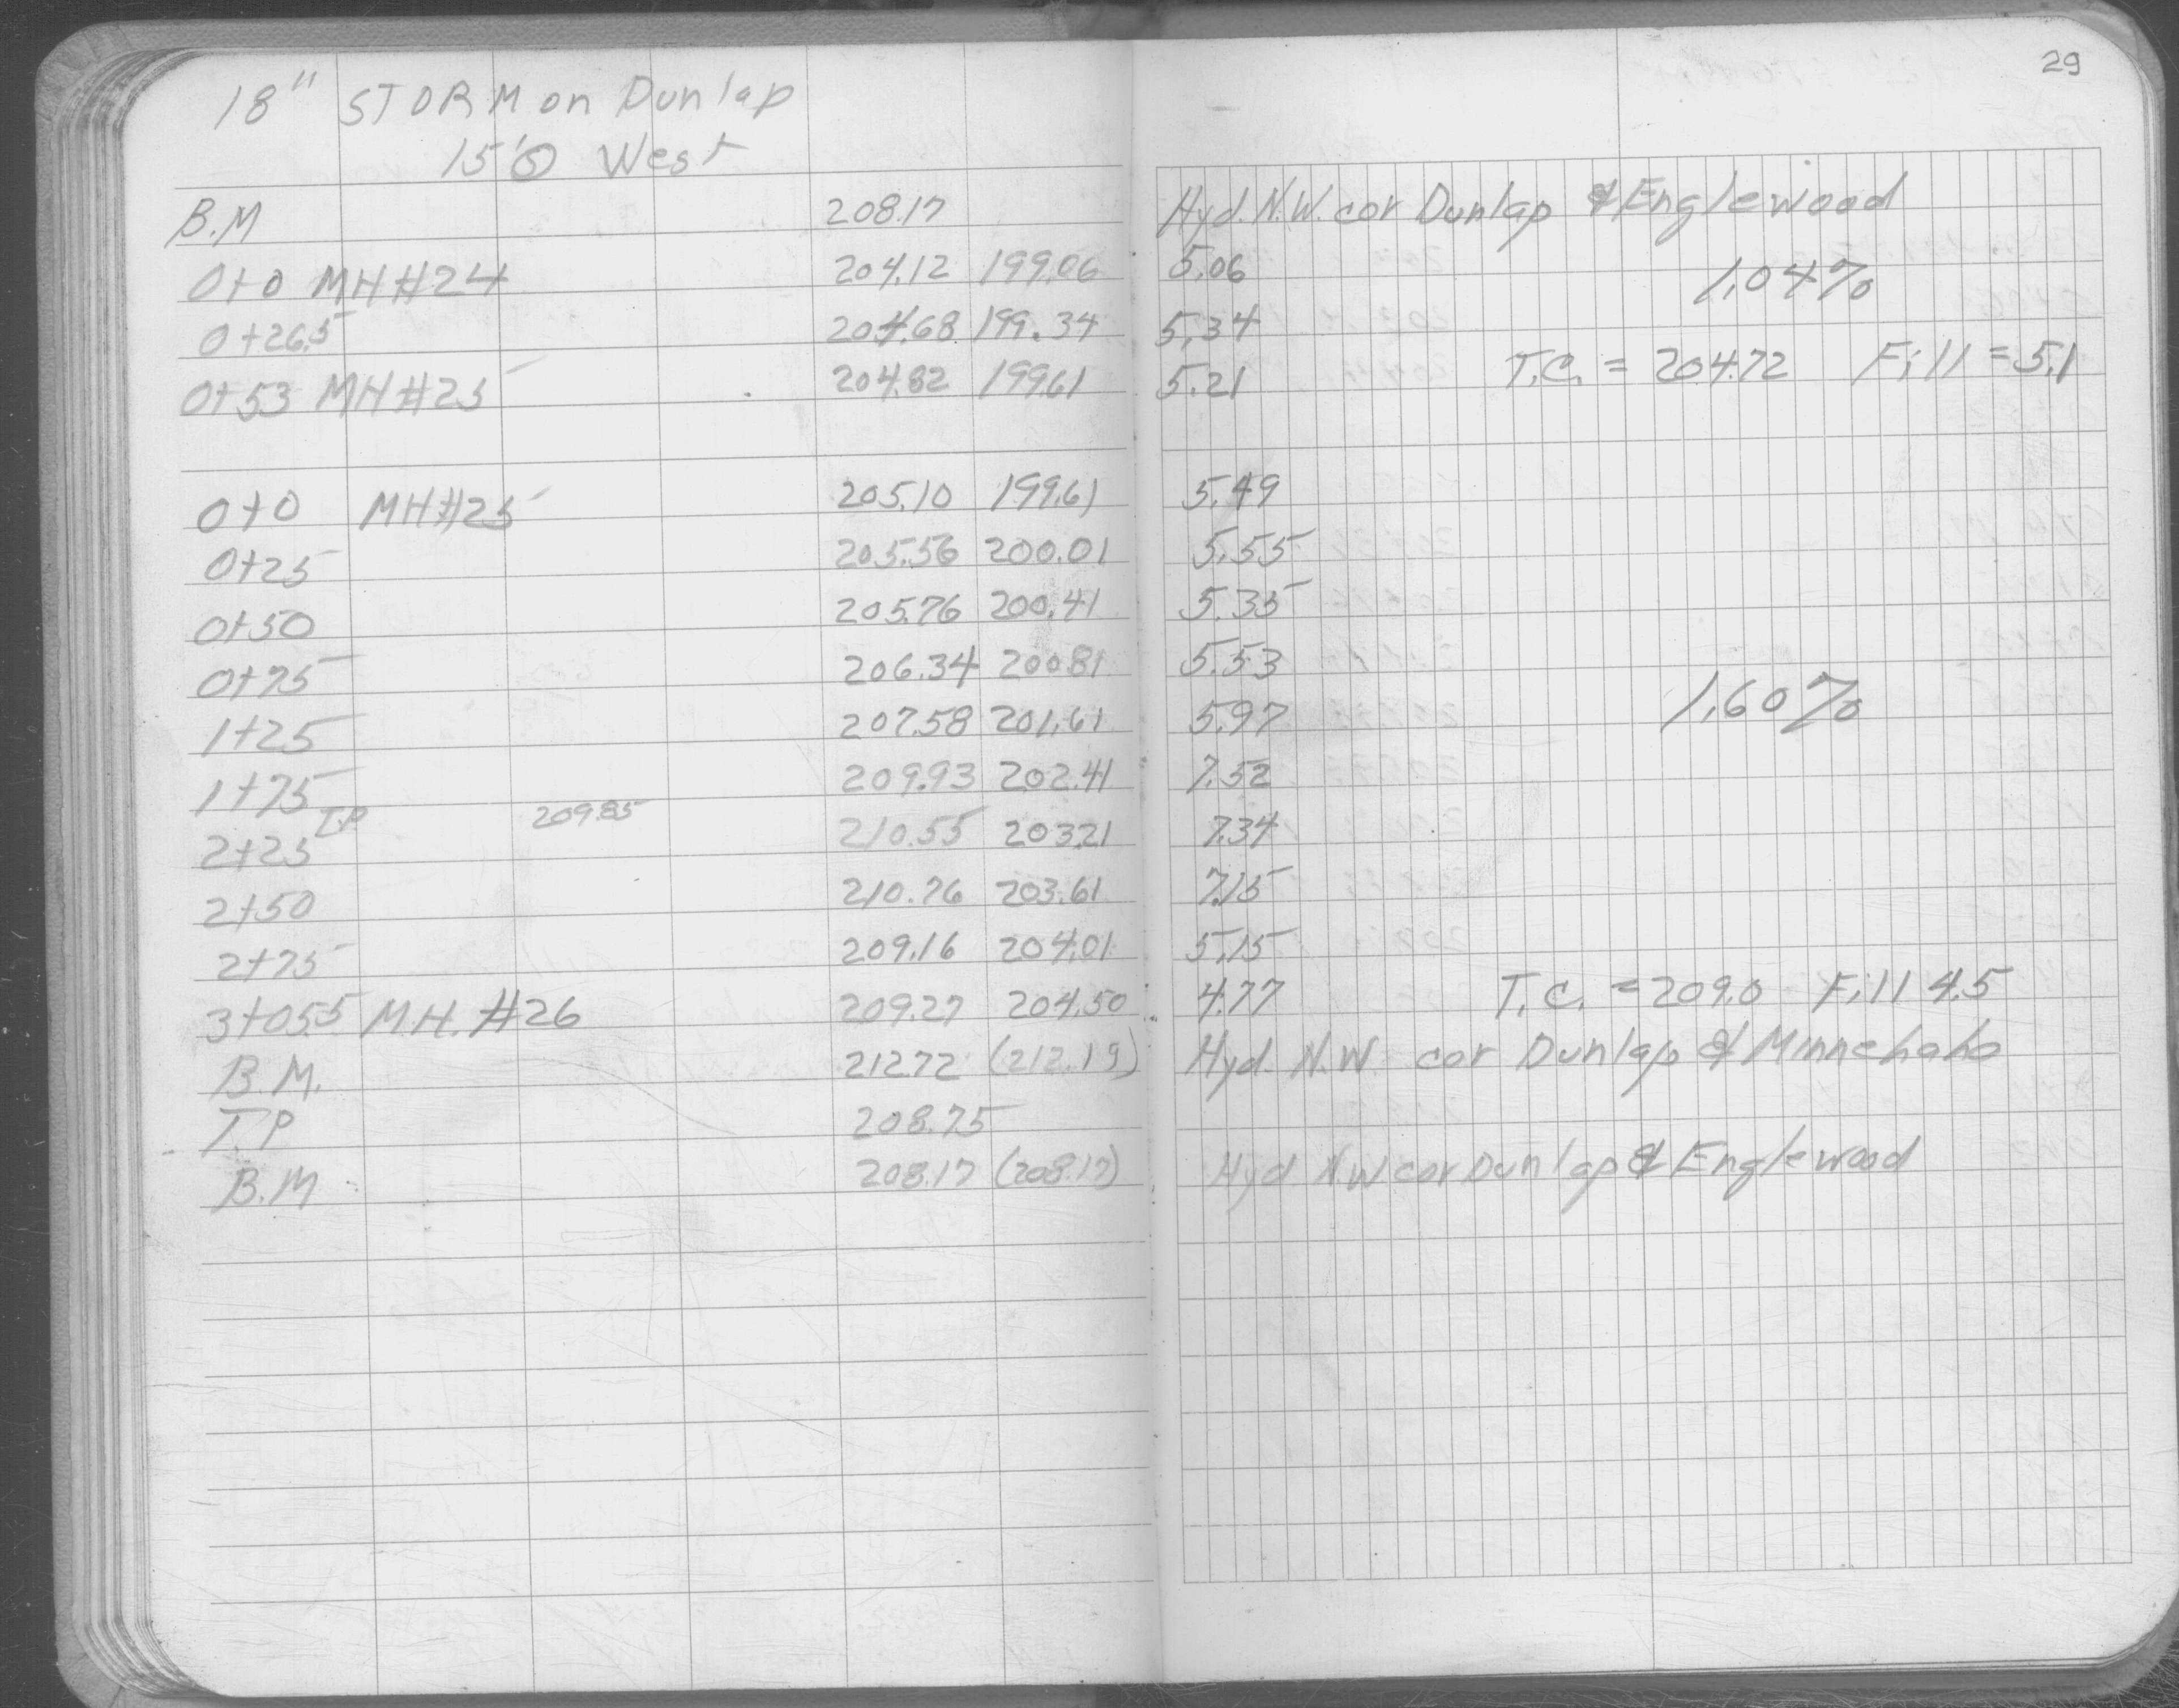 29
18" STORM on Dunlap
15'O West
B.M 208.17 Hyd. N.W. cor Dunlap & Englewood
0+0 MH#24 204.12 199.06 5.06 1.04%
0+26.5 204.68 199.34 5.34
0+53 MH#25 204.82 199.61 5.21 T.C. = 204.72 Fill = 5.1
0+0 MH#25 205.10 199.61 5.49
0+25 205.56 200.01 5.55
0+50 205.76 200.41 5.35
0+75 206.34 200.81 5.53
1+25 207.58 201.61 5.97 1.60%
1+75 209.93 202.41 7.52
T.P 209.85
2+25 210.55 203.21 7.34
2+50 210.76 203.61 7.15
2+75 209.16 204.01 5.15
3+05.5 M.H. #26 209.27 204.50 4.77 T.C. = 209.0 Fill 4.5
B.M. 212.72 (212.19) Hyd. N.W. cor Dunlap & Minnehaha
T.P 208.75
B.M 208.17 (208.17) Hyd N.W cor Dunlap & Englewood